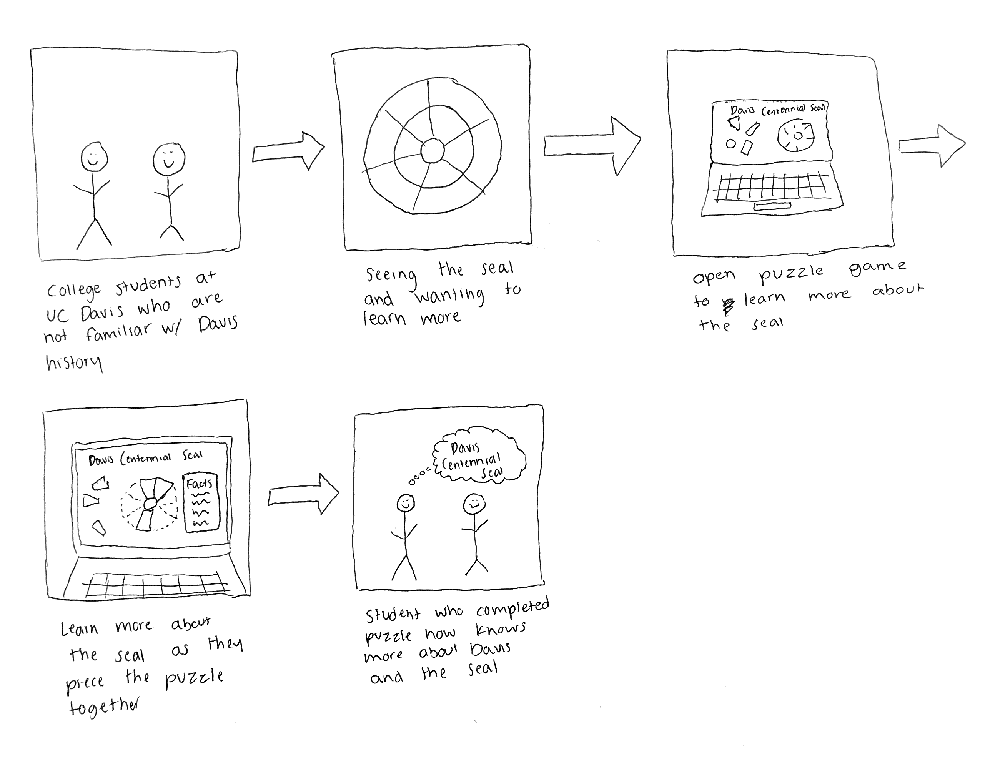 College students at
UC Davis who are
not familiar w/ Davis
history
Seeing the seal
and wanting to
learn more
Davis Centennial Seal
open puzzle game
to learn more about
the seal
Davis Centennial Seal
Facts
Learn more about
the seal as they
piece the puzzle
together
Davis
Centennial
Seal
Student who completed
puzzle now knows
more about Davis
and the seal